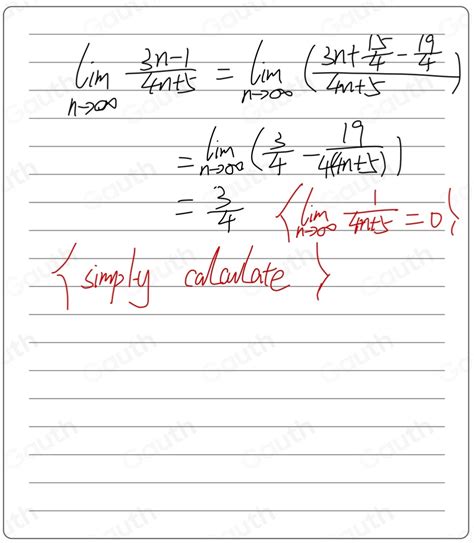 lim n→∞ (3n-1)/(4n+5) = lim n→∞ ((3n+15/4-19/4)/(4n+5))
= lim n→∞ (3/4 - 19/(4(4n+5)))
= 3/4 {lim n→∞ 1/(4n+5) = 0}
{simply calculate}
Gauth